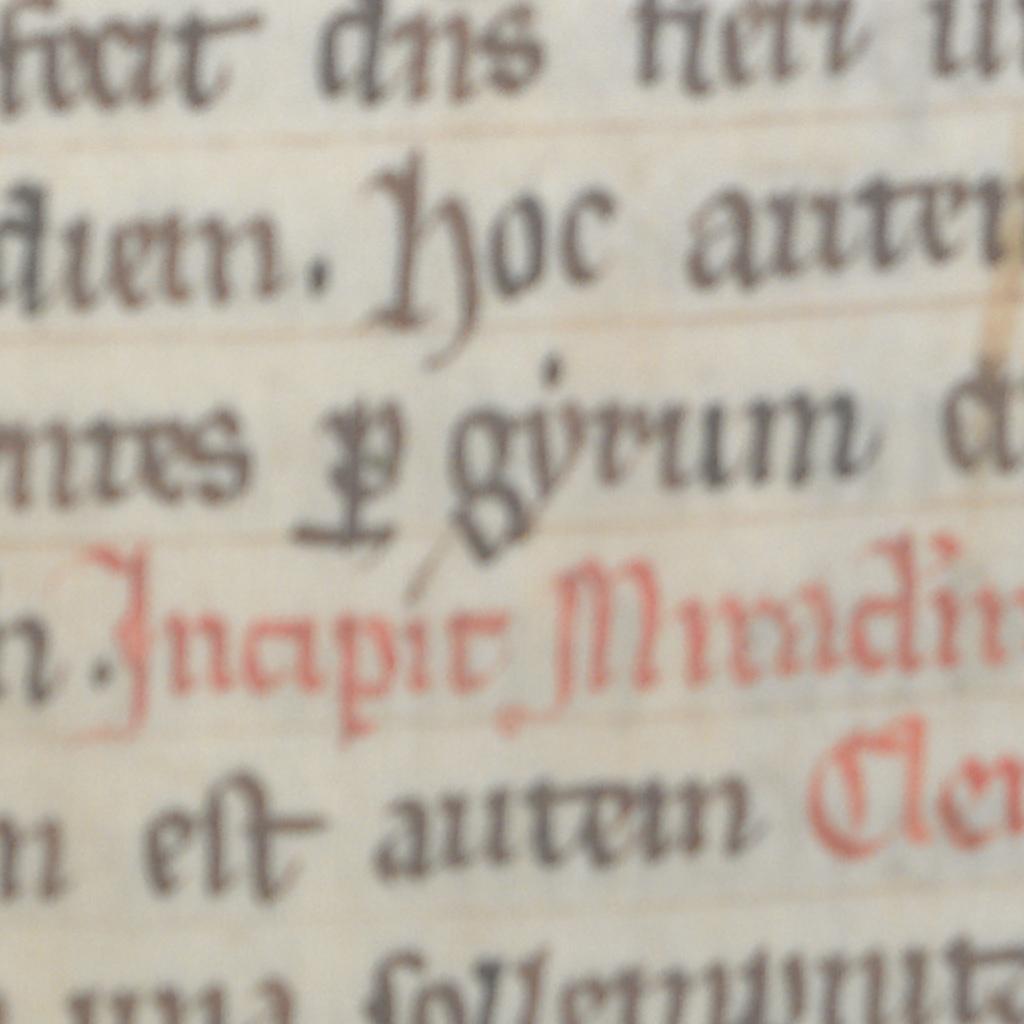 fecit dns fieri
diem. hoc autem
ntes ꝑ gẏrum
n. Incipit
m est autem Clem
una sollempnita